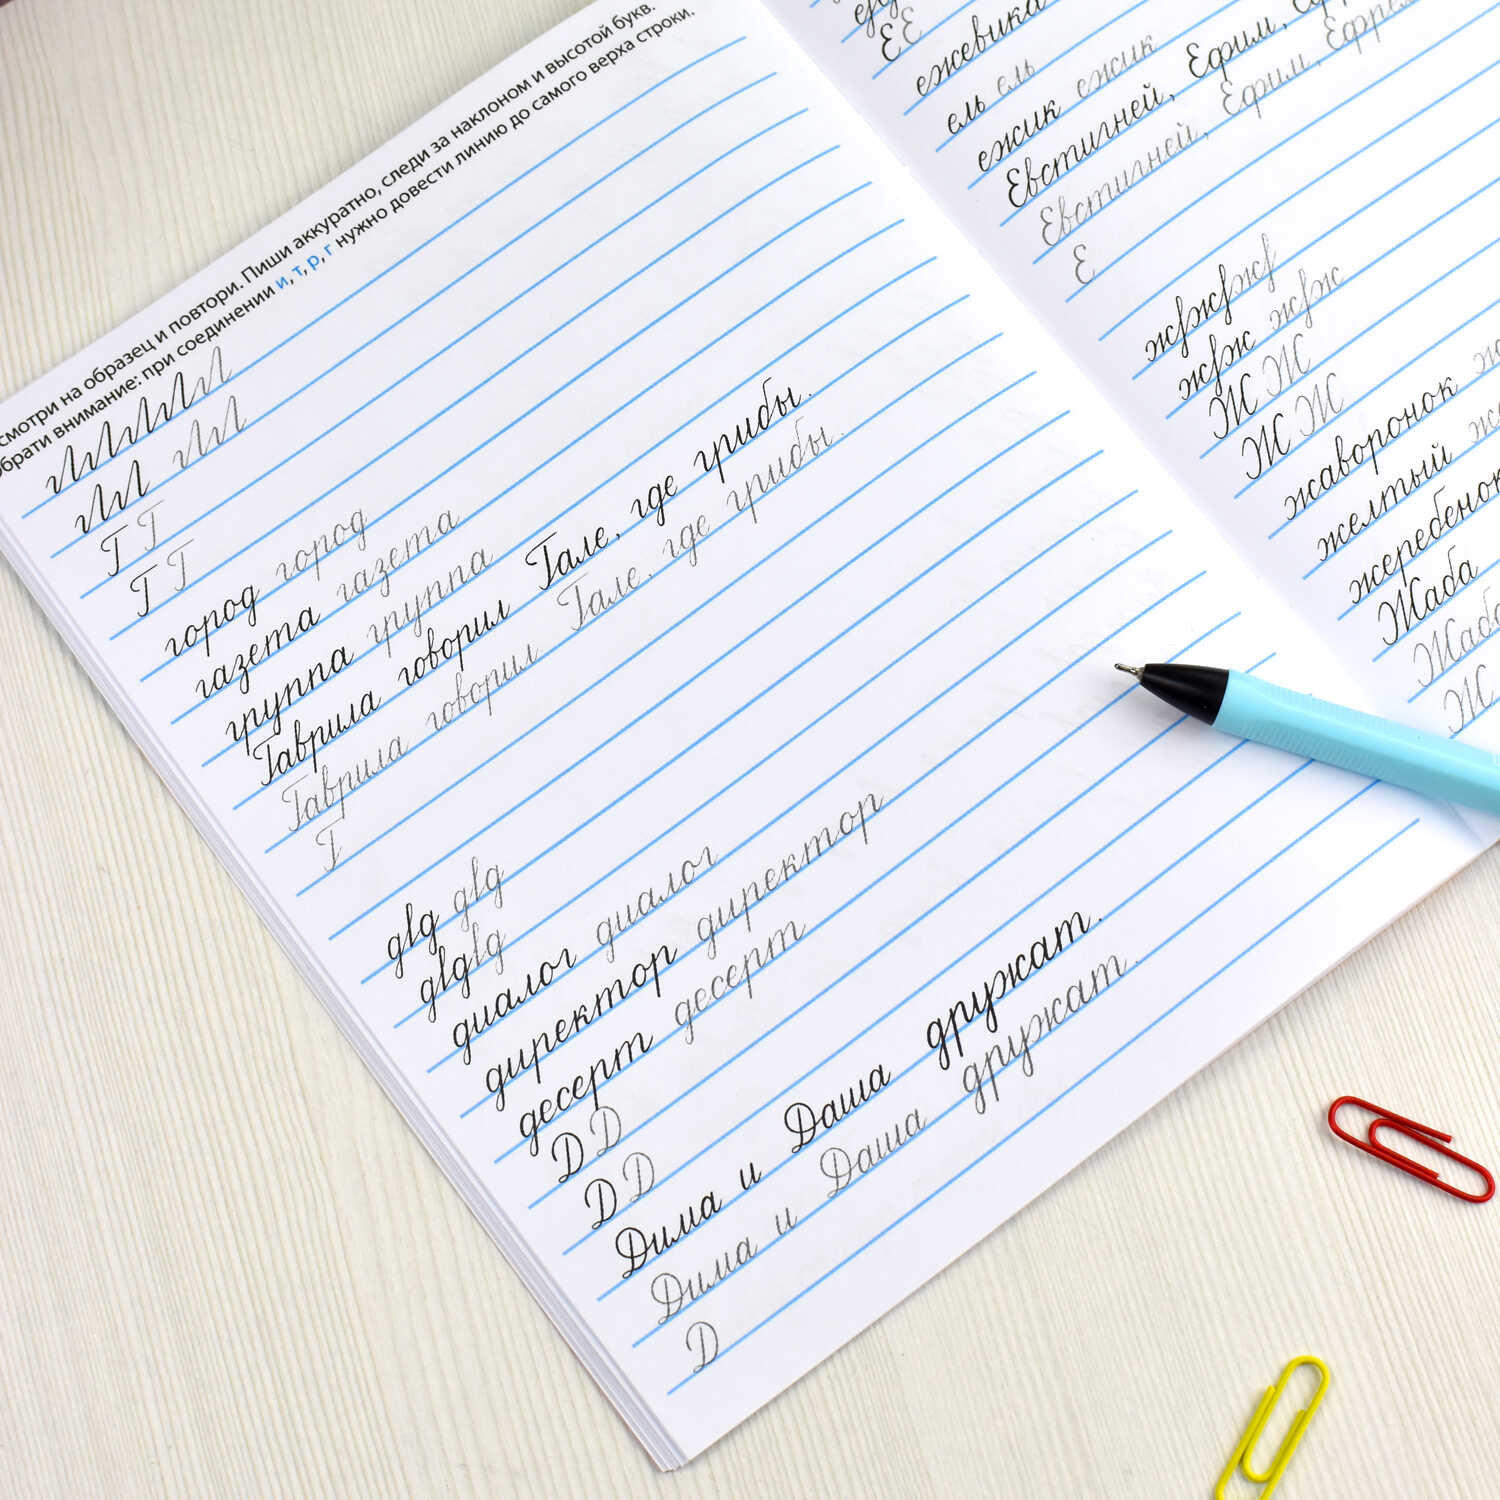 смотри на образец и повтори. Пиши аккуратно, следи за наклоном и высотой букв.
обрати внимание: при соединении и, т, р, г нужно довести линию до самого верха строки.
Г Г
Г Г
город город
газета газета
группа группа
Гаврила говорил Гале, где грибы.
Гаврила говорил Гале, где грибы.
Г
диалог диалог
директор директор
десерт десерт
Д Д
Д Д
Дима и Даша дружат.
Дима и Даша дружат.
Д
Е Е
ежевика
ель ель
ежик ежик
Евстигней, Ефим,
Евстигней, Ефим,
Е
Ж Ж
Ж Ж
жаворонок
желтый
жеребенок
Жаба
Жаба
Ж